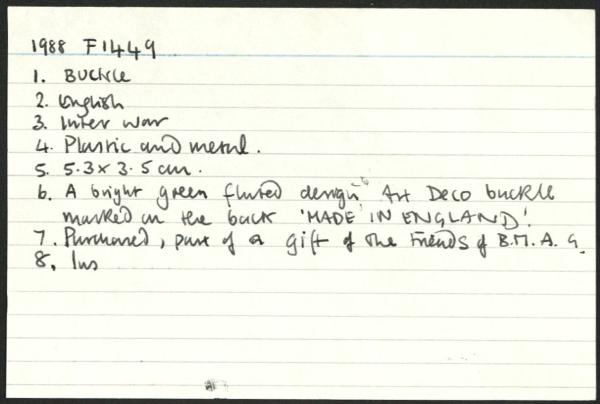 1988 F1449
1. Buckle
2. English
3. Inter war
4. Plastic and metal.
5. 5.3 x 3.5 cm.
6. A bright green fluted design Art Deco buckle
marked on the back 'MADE IN ENGLAND'.
7. Purchased, part of a gift of the Friends of B.M.A.G.
8. Ins